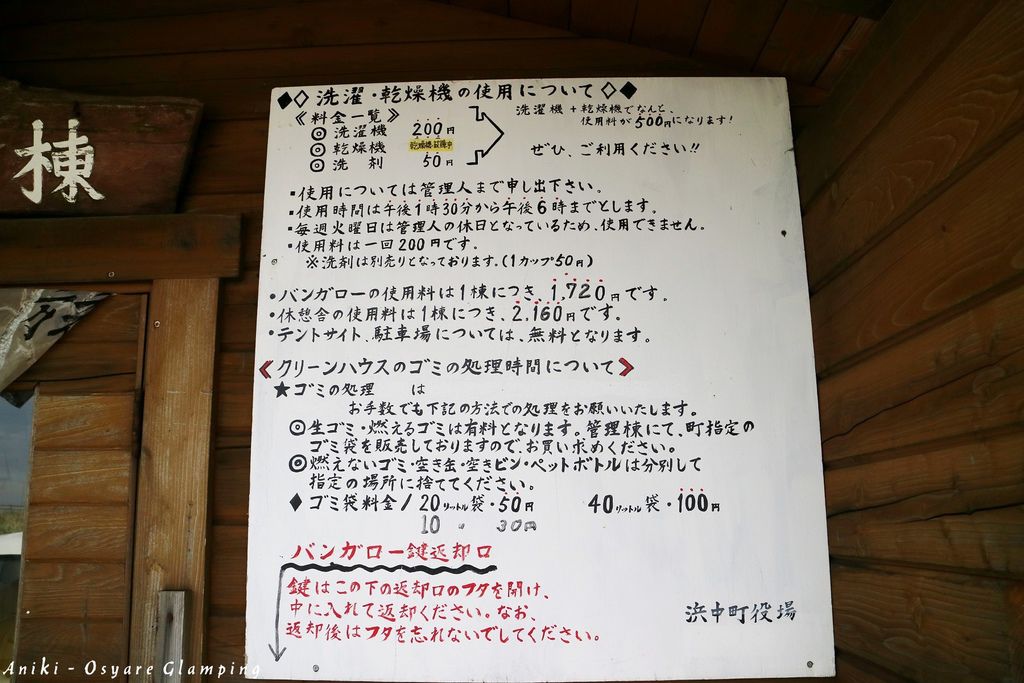 棟
◆◇洗濯・乾燥機の使用について◇◆
《料金一覧》
◎洗濯機 200円
◎乾燥機
◎洗剤 50円
洗濯機+乾燥機でなんと、
使用料が500円になります!
ぜひ、ご利用ください!!
▪使用については管理人まで申し出下さい。
▪使用時間は午後1時30分から午後6時までとします。
▪毎週火曜日は管理人の休日となっているため、使用できません。
▪使用料は一回200円です。
※洗剤は別売りとなっております。(1カップ50円)
•バンガローの使用料は1棟につき、1,720円です。
•休憩舎の使用料は1棟につき、2.160円です。
•テントサイト、駐車場については、無料となります。
《クリーンハウスのゴミの処理時間について》
★ゴミの処理 は
お手数でも下記の方法での処理をお願いいたします。
◎生ゴミ・燃えるゴミは有料となります。管理棟にて、町指定の
ゴミ袋を販売しておりますので、お買い求めください。
◎燃えないゴミ・空き缶・空きビン・ペットボトルは分別して
指定の場所に捨ててください。
♦ゴミ袋料金/20リットル袋・50円 40リットル袋・100円
10 〃 30円
バンガロー鍵返却口
鍵はこの下の返却口のフタを開け、
中に入れて返却ください。なお、
返却後はフタを忘れないでしてください。
浜中町役場
Aniki - Osyare Glamping